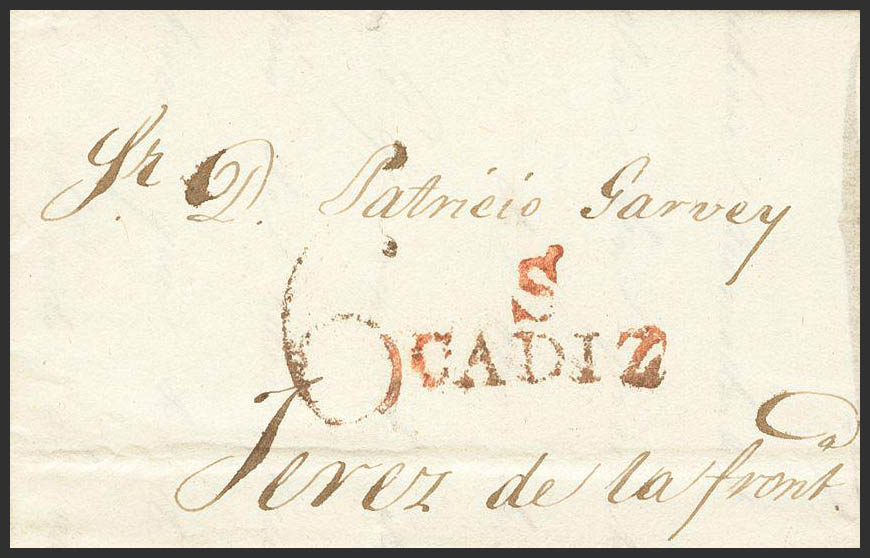 Sr. D. Patricio Garvey
S
6 CADIZ
Jerez de la front.ª